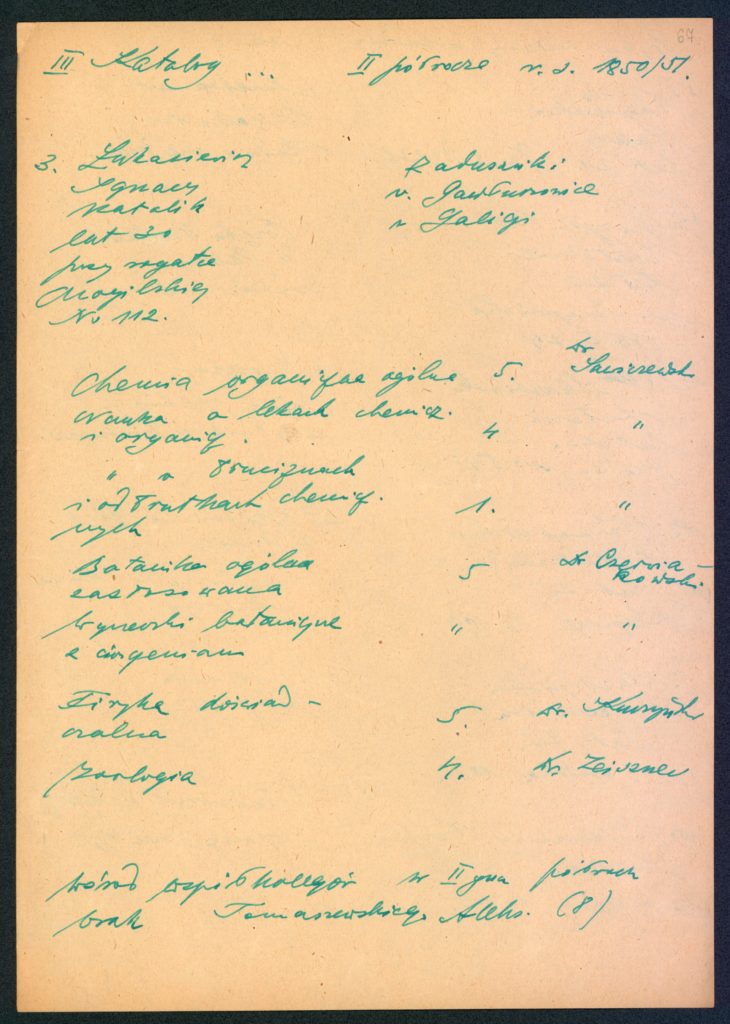 67
III Katalog ... II półrocze r. s. 1850/51.
3. Łukasiewicz Zaduszniki
Ignacy w. Gawłuszowice
katolik z Galicji
lat 30
przy rogatce
Mogilskiej
No 112.
Chemia organiczna ogólna 5. Dr Sawiczewski
Nauka o lekach chemicz.
i organicz. 4 "
" o truciznach
i odtrutkach chemicz. 1. "
nych
Botanika ogólna 5 Dr Czerwia-
zastosowana kowski
Wywody botaniczne " "
z ćwiczeniami
Fizyka doświad- 5. Dr. Kuczyński
czalna
Zoologia 4. Dr. Zeiszner
wśród współkolegów w II gim półroczu
brak Tomaszewskiego Aleks. (8)